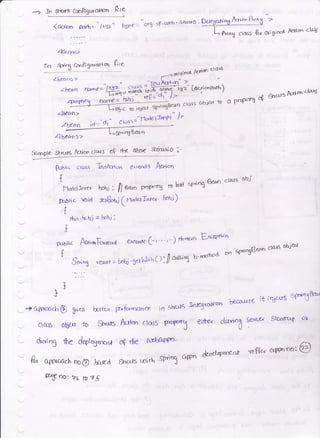 → In struts configuration file
<action path="/xyz" type="org.sf.web.struts.DelegatingActionProxy">
→ Proxy class for original Action class
</beans>
In spring configuration file
<beans>
→ original Action class
<bean name="/xyz" class=
<property name="bobj" ref="d1"/>
→ to inject springBean class object to a property of struts Action class
</bean>
<bean id="d1" class="ModelImpl"/>
→ SpringBean
</beans>
Sample struts Action class of the above scenario :-
public class TestAction extends Action
{
ModelInter bobj; // Bean property to hold spring Bean class obj
public void setBobj(ModelInter bobj)
{
this.bobj = bobj;
}
public ActionForward execute(-,-,-,-) throws Exception
{
String result = bobj. // calling b-method on springBean class object
}
}
→ Approach gives better performance in struts Integration because it injects springBean
class object to Struts Action class property either during server startup or
during the deployment of the webappn.
for approach no② based struts with spring appn development refer appn no: 22
page no: 72 to 75